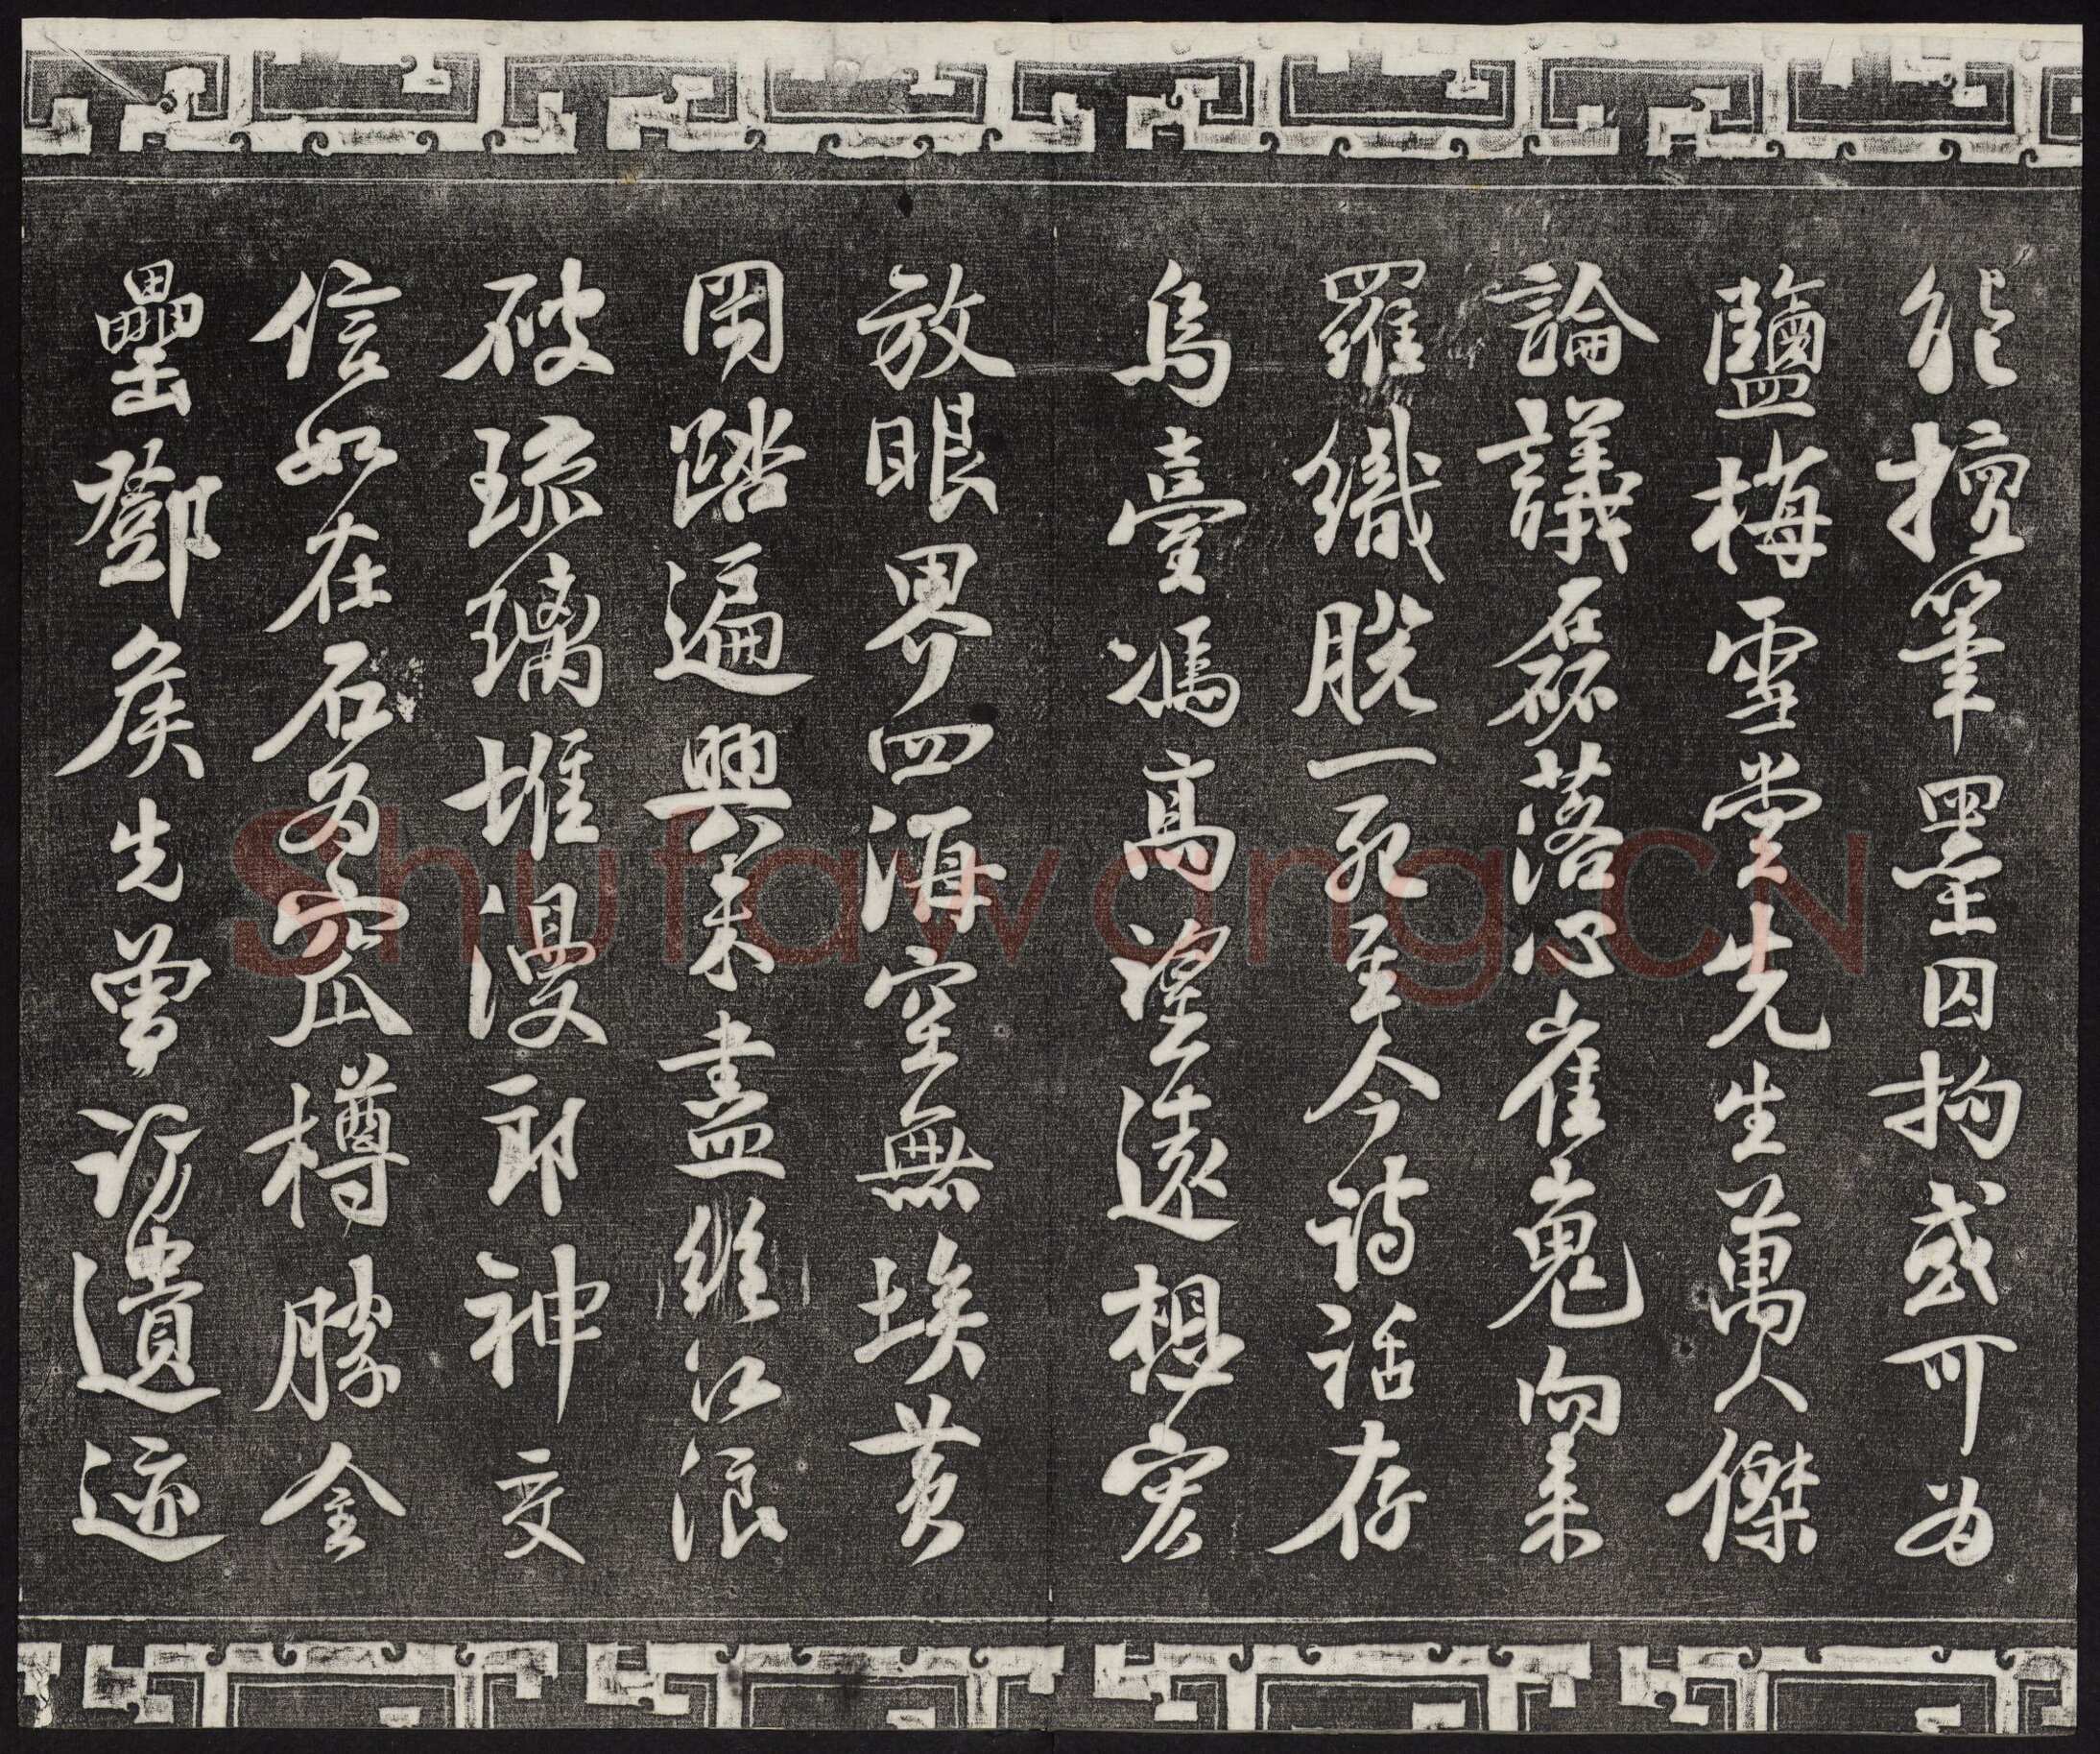 能擅筆墨囚拘或可為
鹽梅雪堂先生萬人傑
論議磊落心崔嵬向來
羅織脫一死至今詩話存
烏臺馮高望遠想宏
放眼界四海空無埃黃
岡踏遍興未盡繼江浪
破琉璃堆漫郎神交
信如在石為窊樽勝金
罍鄧侯先曾訪遺迹
Shufawang.CN